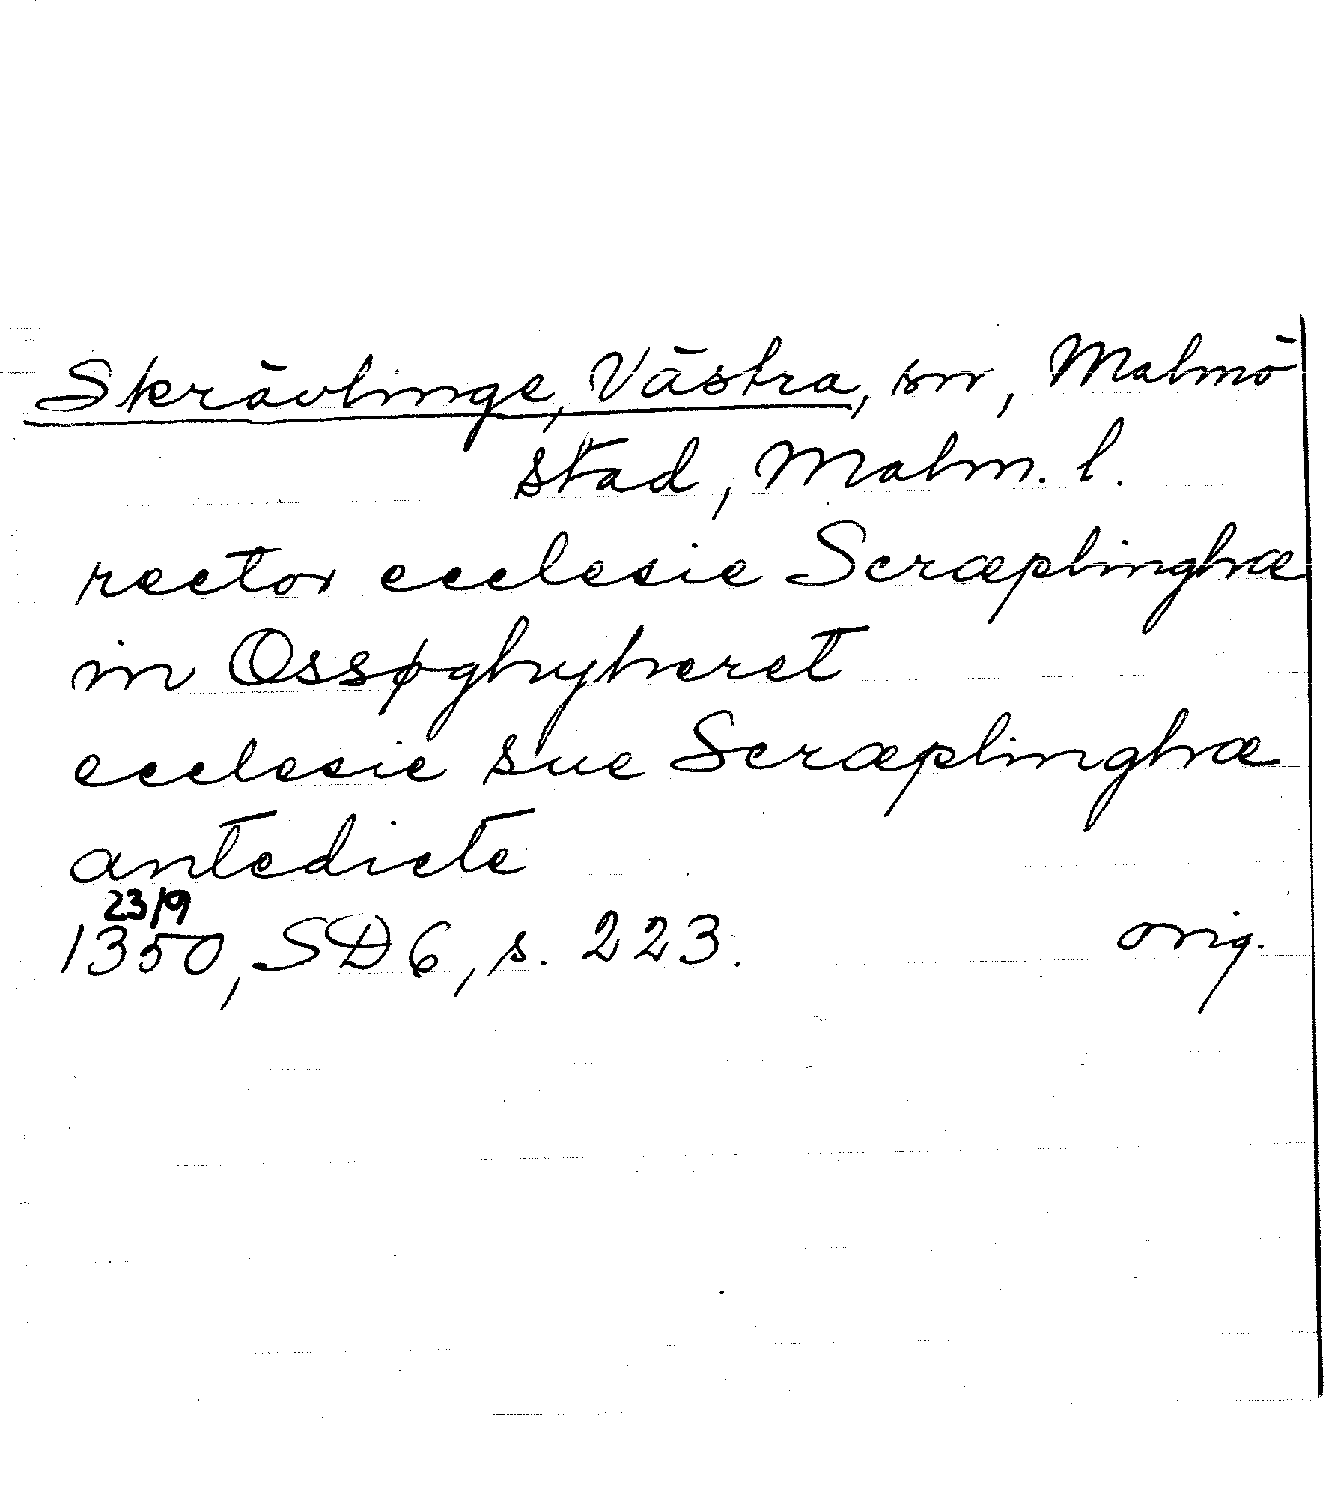 Skrävlinge, Västra, sn, Malmö
stad, Malm. l.
rector ecclesie Scræplinghæ
in Ossøghyheret
ecclesie sue Scræplinghæ
antedicte
23/9
1350, SD 6, s. 223. orig.